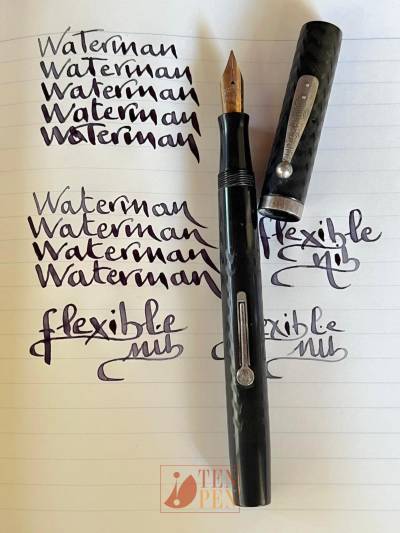 Waterman
Waterman
Waterman
Waterman
Waterman
Waterman
Waterman
Waterman
Waterman
flexible
nib
flexible
nib
flexible
nib
TEN
PEN